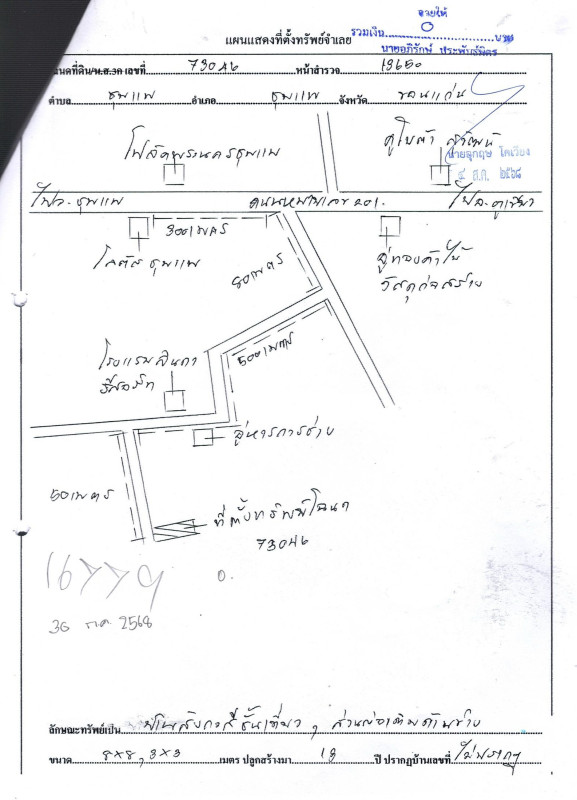 อายัด
แผนแสดงที่ตั้งทรัพย์จำเลย
รวมเงิน 0 บาท
นายอภิรักษ์ ประพันธ์มิตร
โฉนดที่ดิน/น.ส.3ก เลขที่ 73046 หน้าสำรวจ 13650
ตำบล ชุมแพ อำเภอ ชุมแพ จังหวัด ขอนแก่น
โฟลัคพระนครชุมแพ
คูโบต้า
๕ ส.ค. ๒๕๖๘
ไป อ.ชุมแพ ถนนหมายเลข 201 ไป อ.ภูเขียว
300 เมตร
โลตัส ชุมแพ
80 เมตร
วัสดุก่อสร้าง
500 เมตร
โรงแรม
รีสอร์ท
อู่
50 เมตร
ที่ตั้งทรัพย์โฉนด
73046
16779
0.
30 2568
ลักษณะทรัพย์เป็น ชั้นเดียว , ส่วนต่อเติมด้านข้าง
ขนาด 8x8, 3x3 เมตร ปลูกสร้างมา 13 ปี ปรากฏบ้านเลขที่ ไม่ปรากฏ